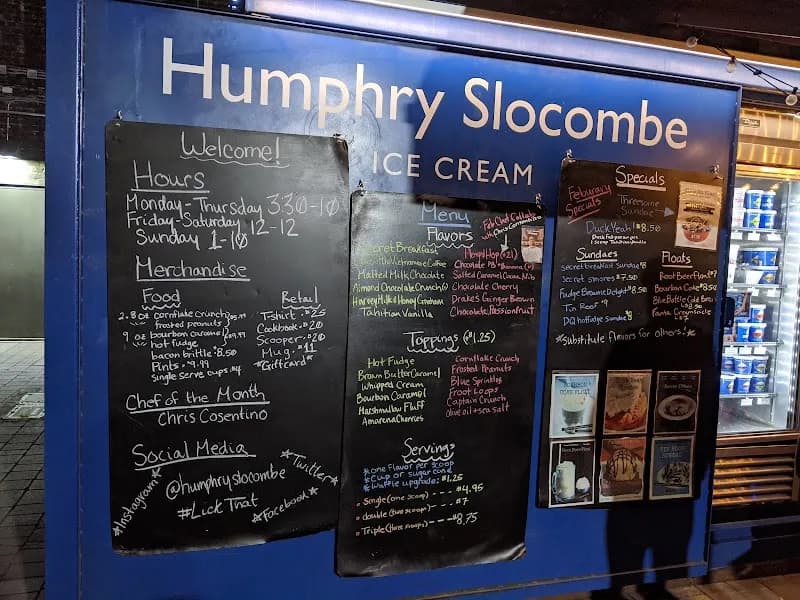 Humphry Slocombe
ICE CREAM
Welcome!
Hours
Monday-Thursday 3:30-10
Friday-Saturday 12-12
Sunday 1-10
Merchandise
Food
2.8 oz cornflake crunch
frosted peanuts
9 oz bourbon caramel
hot fudge
bacon brittle $8.50
Pints $9.99
Single serve cups $4
Retail
T-shirt $25
Cookbook $20
Scooper $20
Mug $11
*Giftcard*
Chef of the Month
Chris Cosentino
Social Media
@humphryslocombe
#LickThat
*Instagram*
*Twitter*
*Facebook*
Menu
Flavors
Feb Chef Collab
with Chris Cosentino
Secret Breakfast
Vietnamese Coffee
Malted Milk Chocolate
Almond Chocolate Crunch
Harvey Milk & Honey Graham
Tahitian Vanilla
Chocolate
Chocolate Cherry
Drakes Ginger Brown
Chocolate Passionfruit
Toppings ($1.25)
Hot Fudge
Brown Butter Caramel
Whipped Cream
Bourbon Caramel
Marshmallow Fluff
Amarena Cherries
Cornflake Crunch
Frosted Peanuts
Blue Sprinkles
Froot Loops
Captain Crunch
Olive oil + sea salt
Servings
*one flavor per scoop
*Cup or sugar cone
*Waffle upgrade: $1.25
Single (one scoop) --- $4.95
double (two scoops) --- $7
Triple (three scoops) --- $8.75
Specials
Feburary
Specials
Threesome
Sundae
Duck Yeah! $8.50
Sundaes
Secret breakfast Sundae $8
Secret smores $7.50
Fudge Brownie Delight $8.50
Tin Roof $9
DQ hot fudge Sundae $8
Floats
Root Beer float
Bourbon Coke $8.50
Blue Bottle Cold Brew
Fanta Creamsicle
*Substitute flavors for others!*